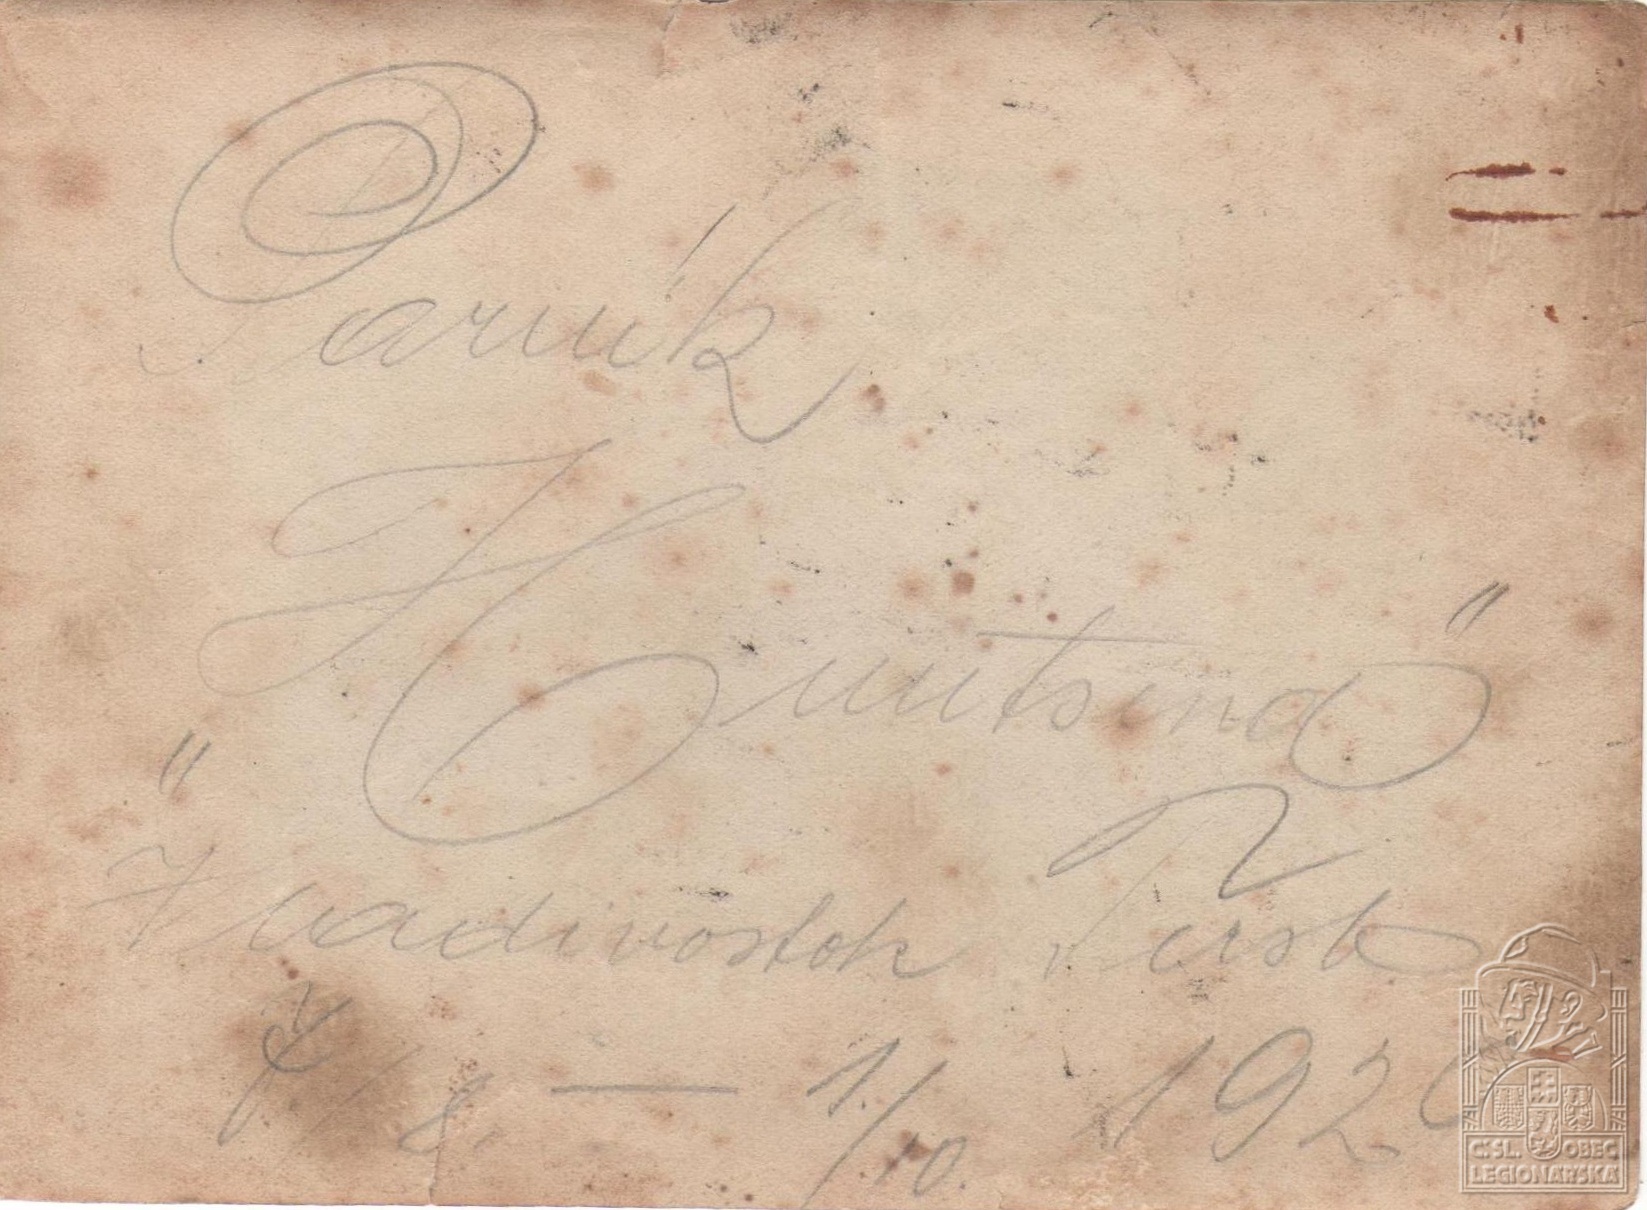 Parník
„Huntsend"
Vladivostok Terst
7./8. — 1./10. 1920
Č.SL. OBEC
LEGIONÁŘSKÁ